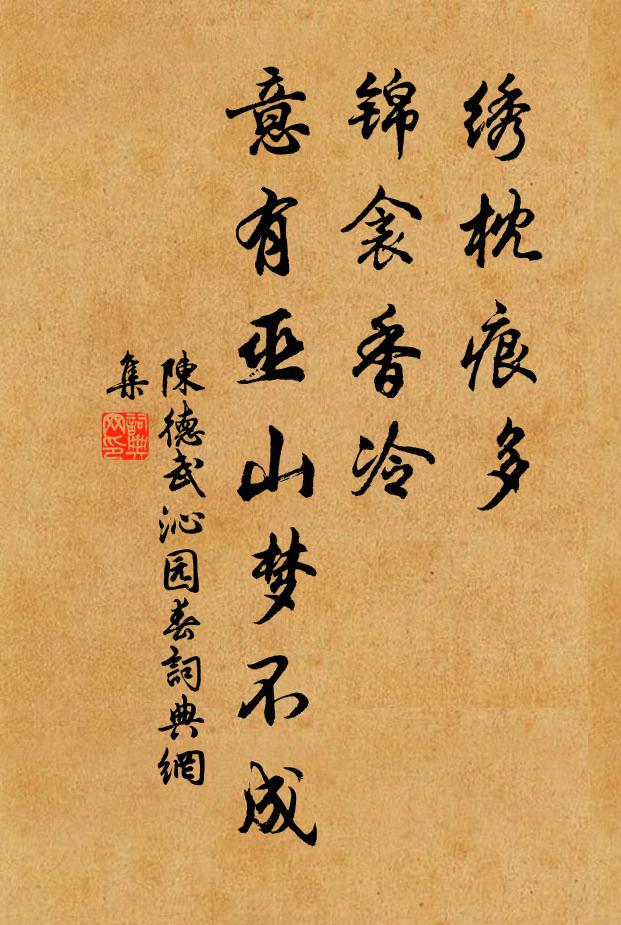 绣枕痕多
锦衾香冷
意有巫山梦不成
陳德武沁园春詞典網
集
詞典
网印